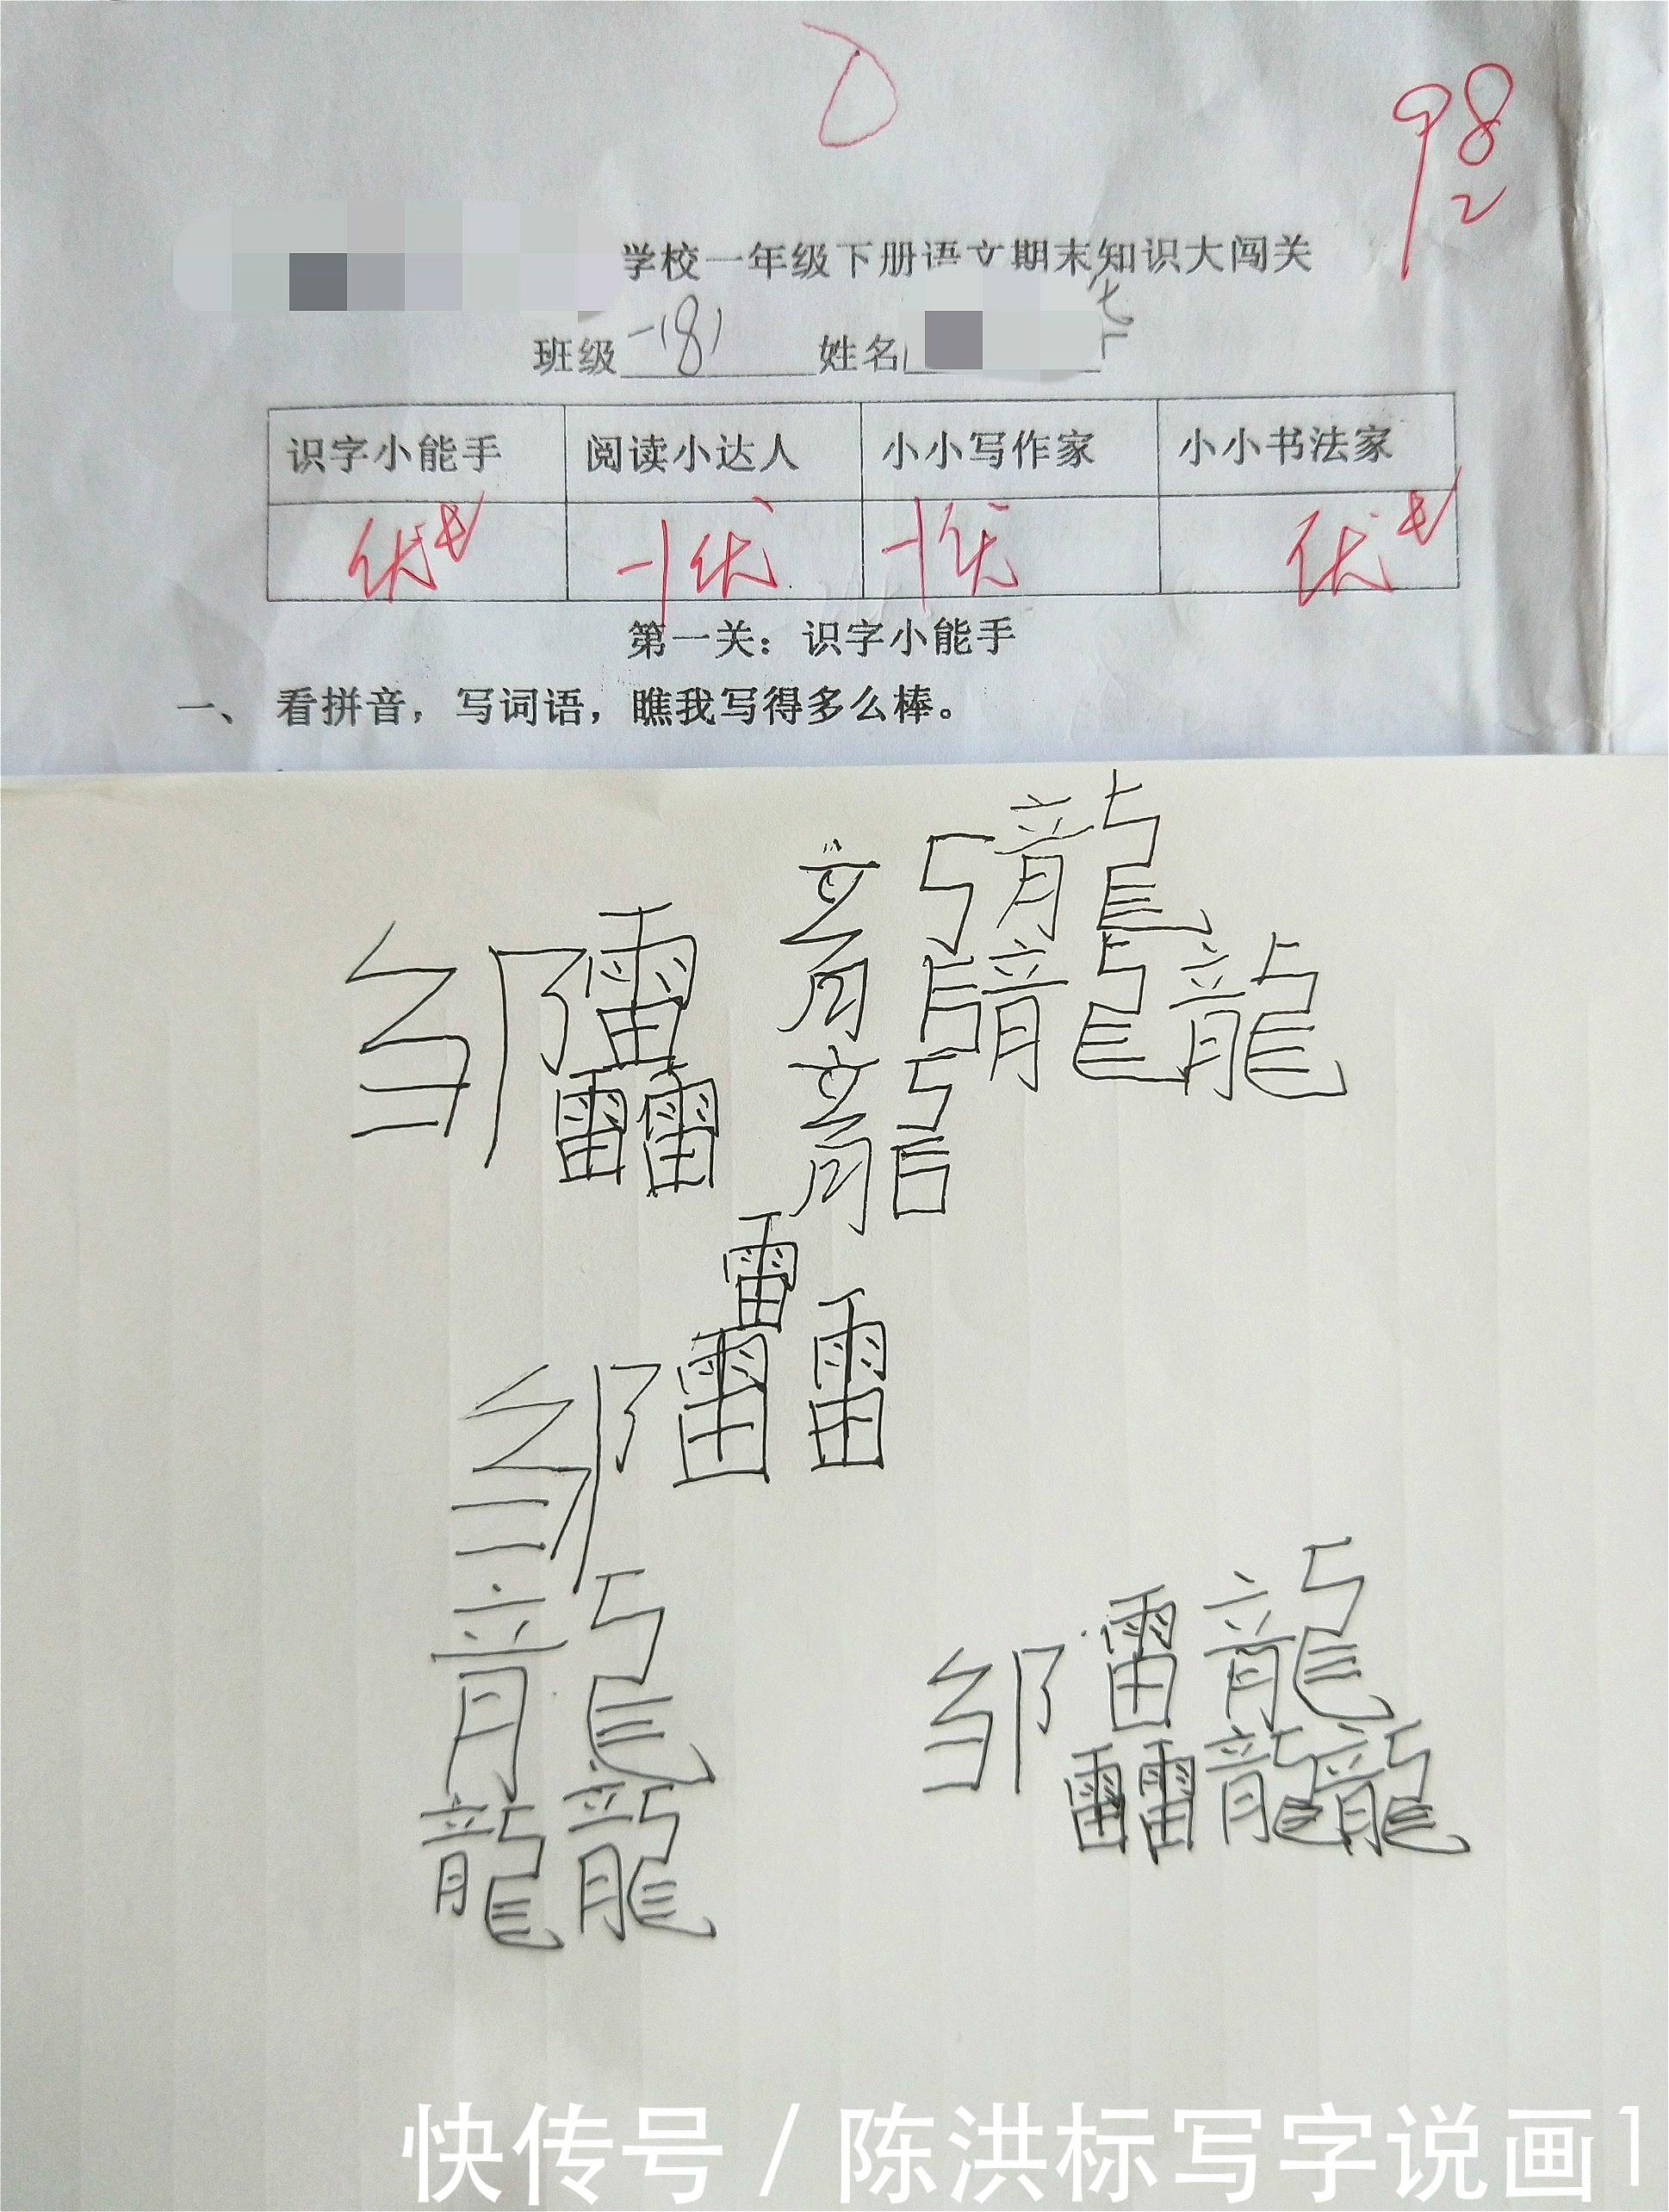 98
2
学校一年级下册语文期末知识大闯关
班级 一(8) 姓名
识字小能手 阅读小达人 小小写作家 小小书法家
优+ -1优 -1优 优+
第一关：识字小能手
一、 看拼音，写词语，瞧我写得多么棒。
邹靐龘
邹靐
龘
邹靐龘
快传号 / 陈洪标写字说画1